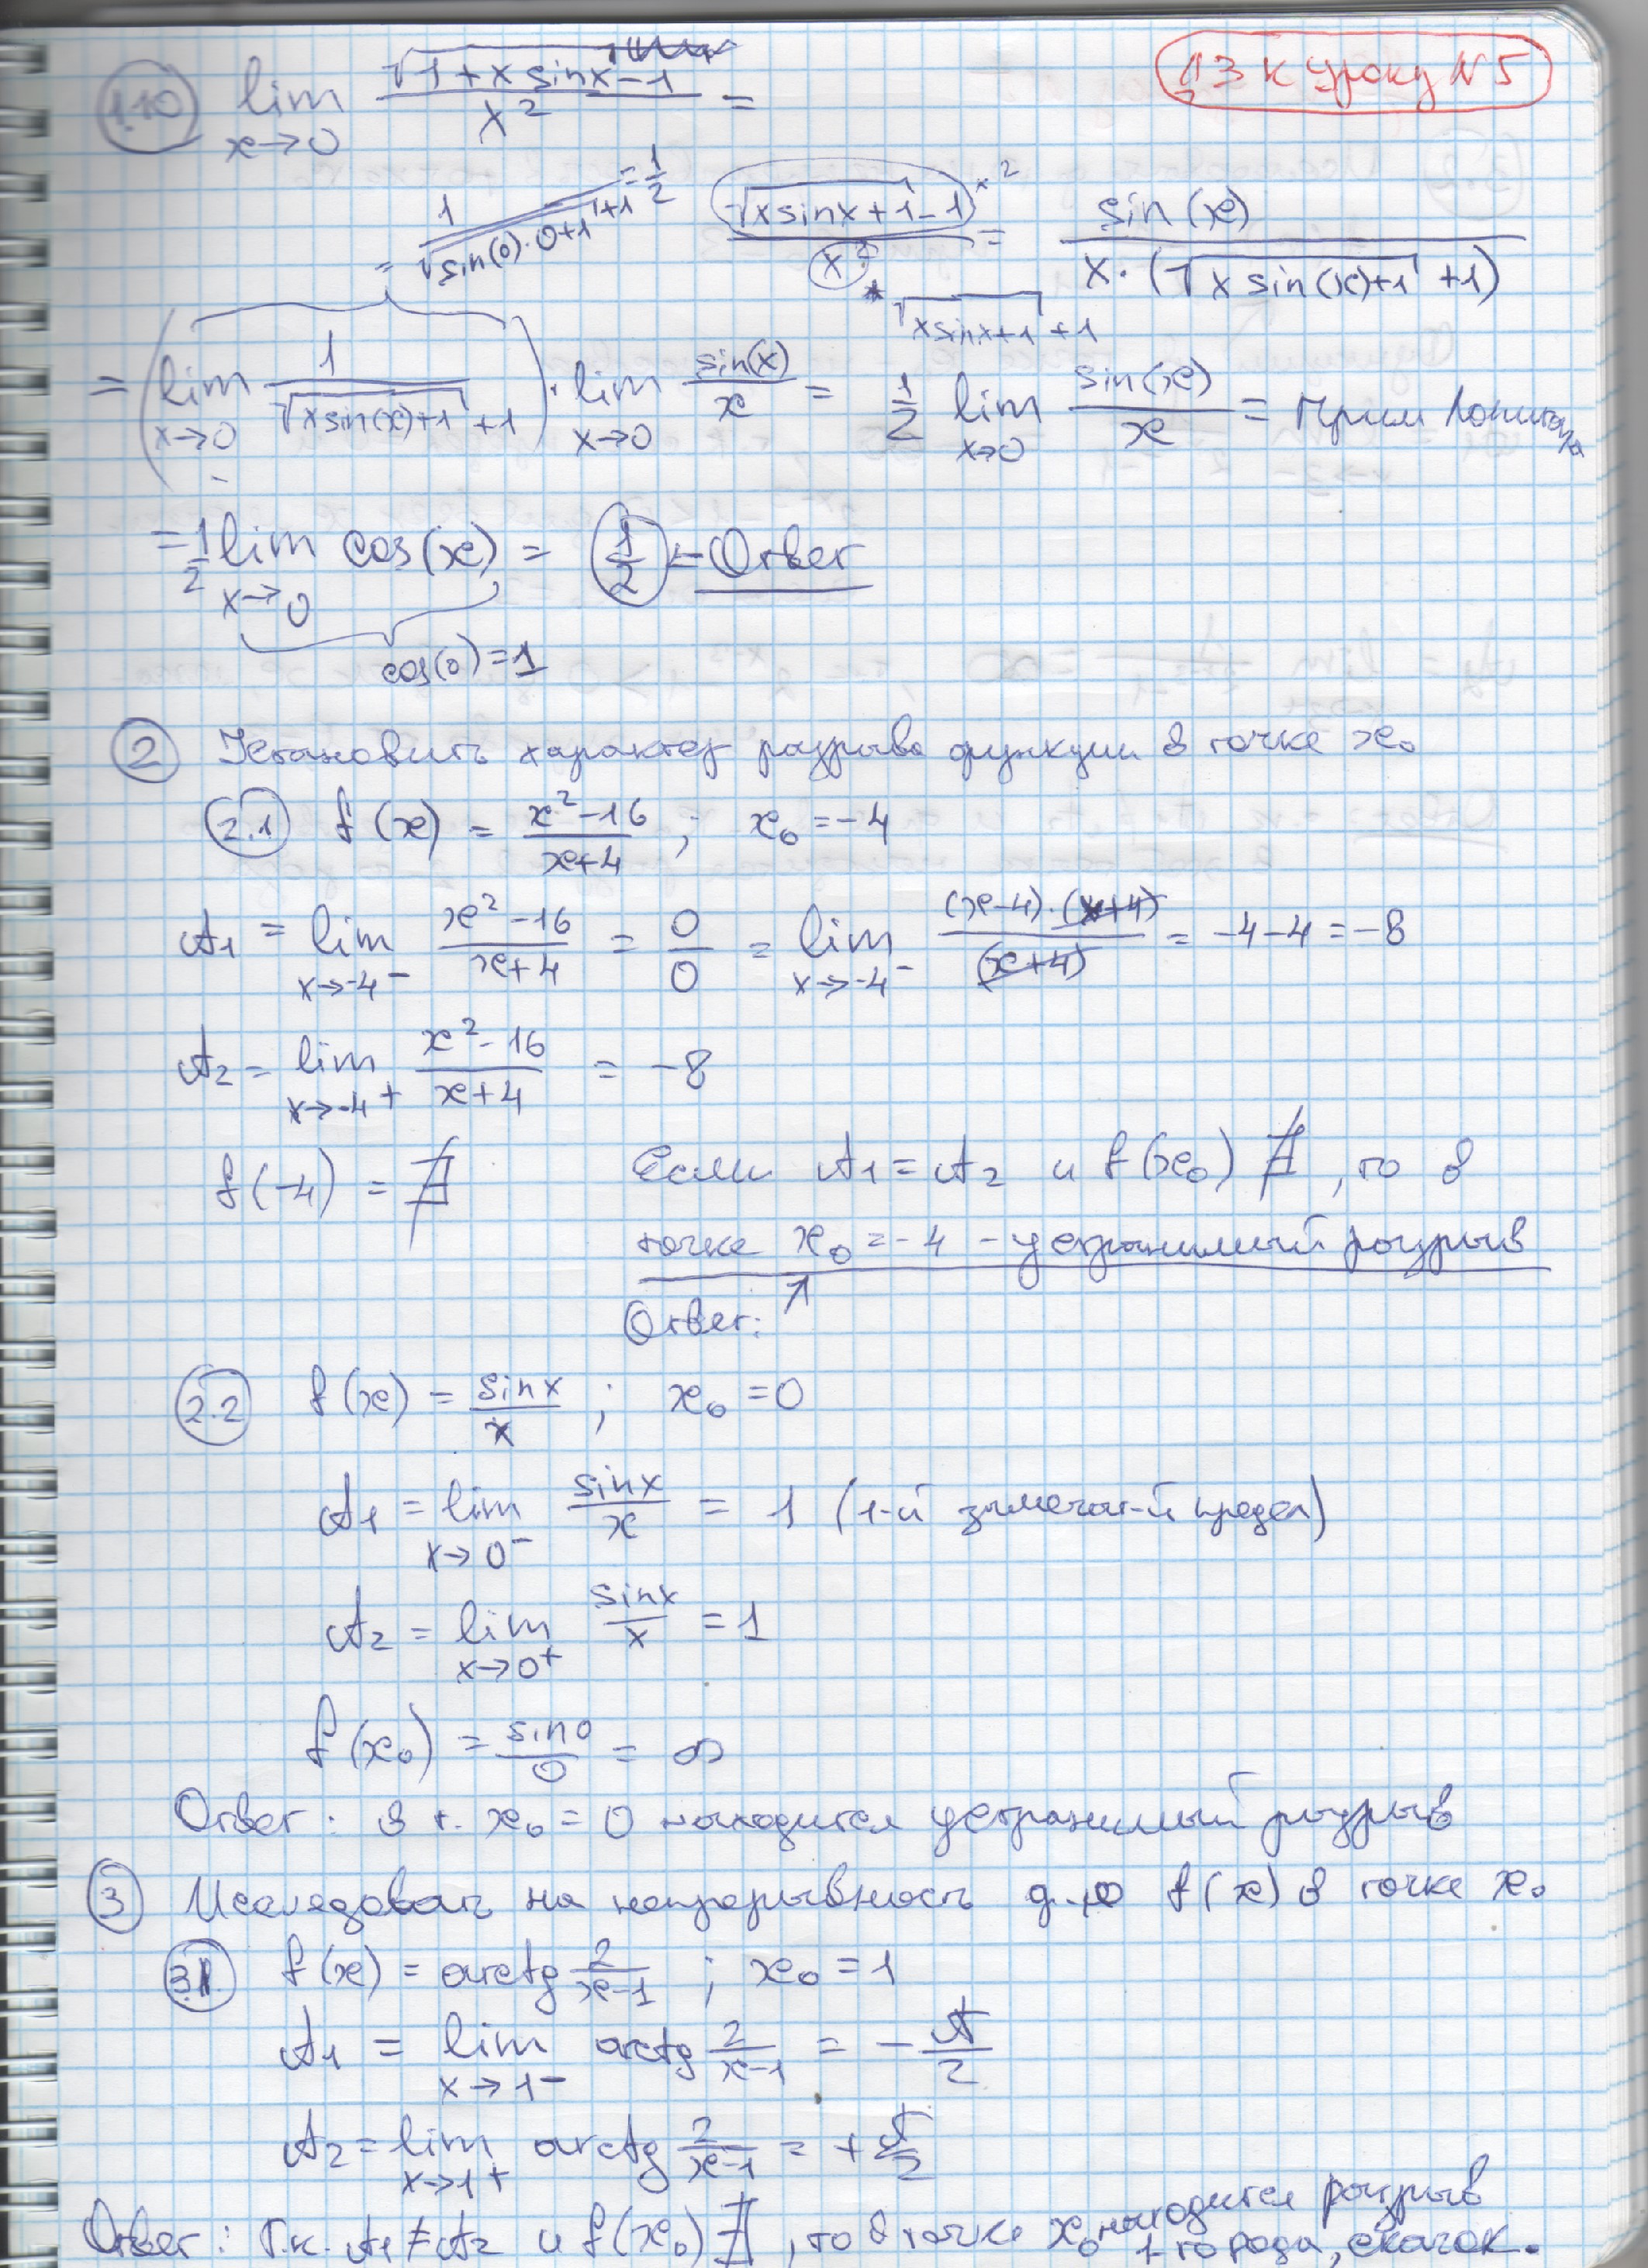 ДЗ к уроку N5
1.10 lim x→0 (√(1+x sinx) −1)/x² =
= 1/(√(sin(0)·0+1) +1) = 1/2
(√(xsinx+1) −1)/x² * √(xsinx+1) +1 = sin(x)/(x·(√(x sin(x)+1) +1))
= (lim x→0 1/(√(xsin(x)+1) +1)) · lim x→0 sin(x)/x = 1/2 lim x→0 sin(x)/x = Прим Лопиталя
= 1/2 lim x→0 cos(x) = 1/2 ← Ответ
cos(0)=1
2 Установить характер разрыва функции в точке x₀
2.1 f(x) = (x²−16)/(x+4) ; x₀ = −4
A₁ = lim x→-4⁻ (x²−16)/(x+4) = 0/0 = lim x→-4⁻ (x−4)·(x+4)/(x+4) = −4−4 = −8
A₂ = lim x→-4+ (x²−16)/(x+4) = −8
f(−4) = ∄ Если A₁ = A₂ и f(x₀) ∄, то в
точке x₀ = −4 − устранимый разрыв
Ответ: ↗
2.2 f(x) = sinx/x ; x₀ = 0
A₁ = lim x→0⁻ sinx/x = 1 (1-й замечат-й предел)
A₂ = lim x→0⁺ sinx/x = 1
f(x₀) = sin0/0 = ∞
Ответ: в т. x₀ = 0 находится устранимый разрыв
3 Исследовать на непрерывность ф-ю f(x) в точке x₀
3.1 f(x) = arctg 2/(x−1) ; x₀ = 1
A₁ = lim x→1− arctg 2/(x−1) = −π/2
A₂ = lim x→1+ arctg 2/(x−1) = +π/2
Ответ: Т.к. A₁ ≠ A₂ и f(x₀) ∄, то в точке x₀ находится разрыв
1-го рода, скачок.